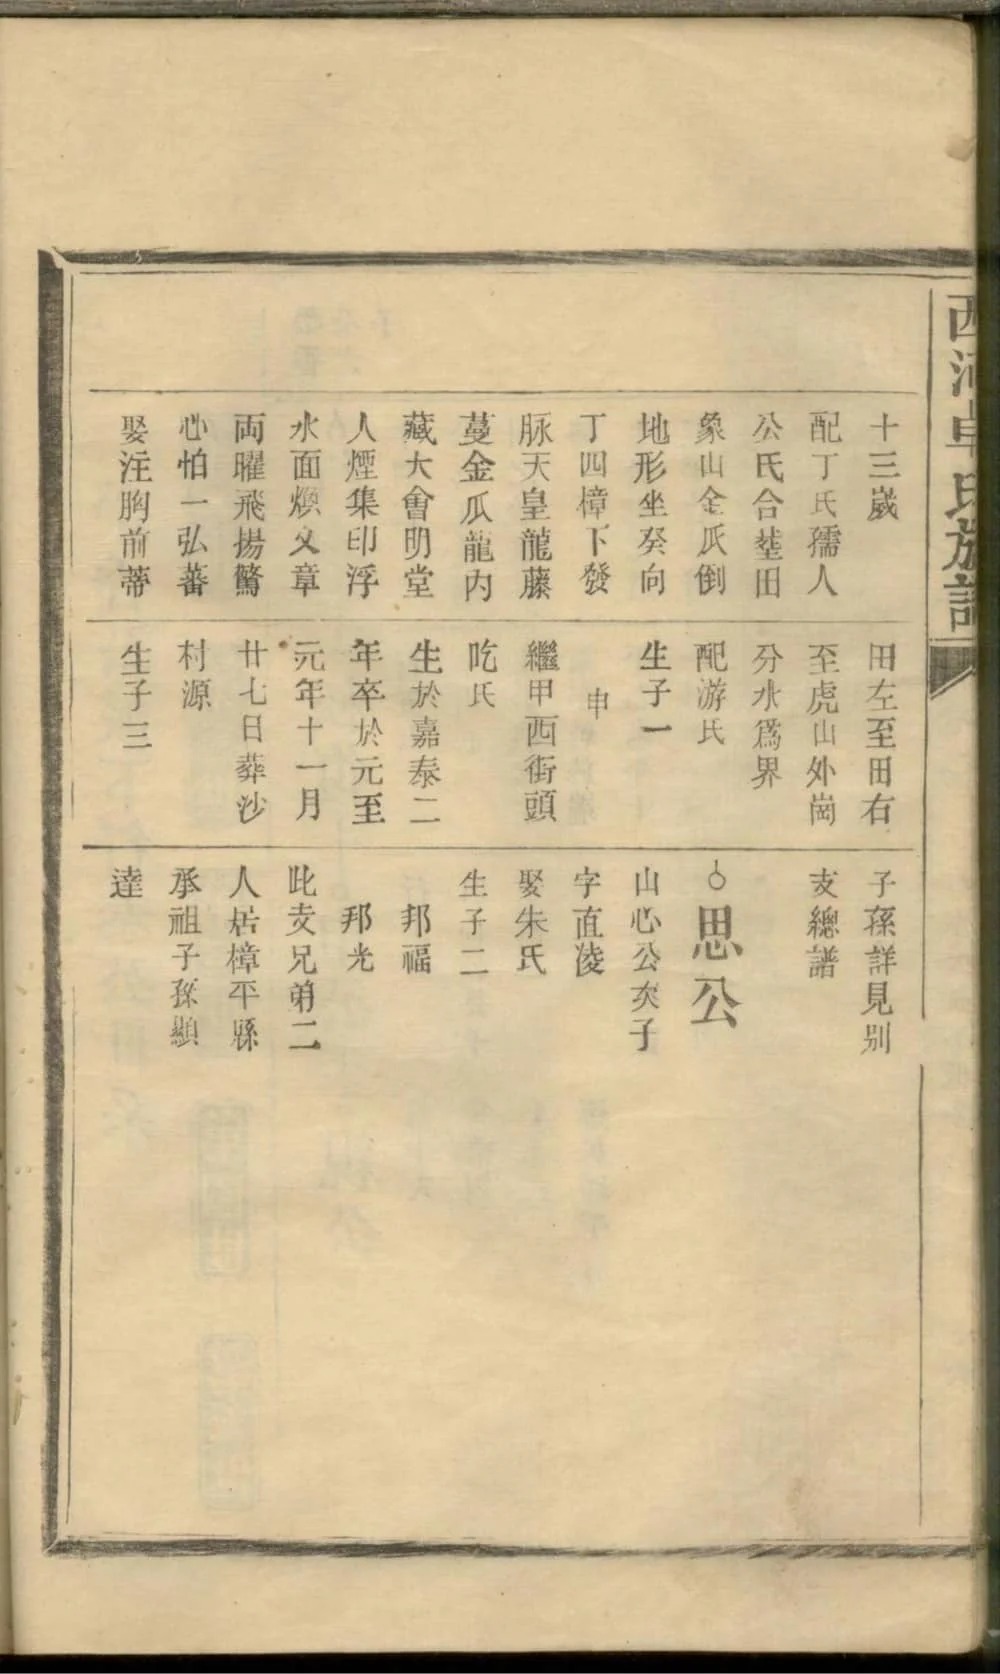 西河卓氏族譜
十三歲
配丁氏孺人
公氏合塟田
象山金瓜倒
地形坐癸向
丁四樟下發
脉天皇龍藤
蔓金瓜龍內
藏大會明堂
人煙集印浮
水面煥文章
両曜飛揚驚
心怕一弘蕃
娶注胸前蒂
田左至田右
至虎山外崗
分水爲界
配游氏
生子一
申
繼甲西街頭
吃氏
生於嘉泰二
年卒於元至
元年十一月
廿七日葬沙
村源
生子三
子孫詳見别
支總譜
思公
山心公次子
字直凌
娶朱氏
生子二
邦福
邦光
此支兄弟二
人居樟平縣
承祖子孫顯
達